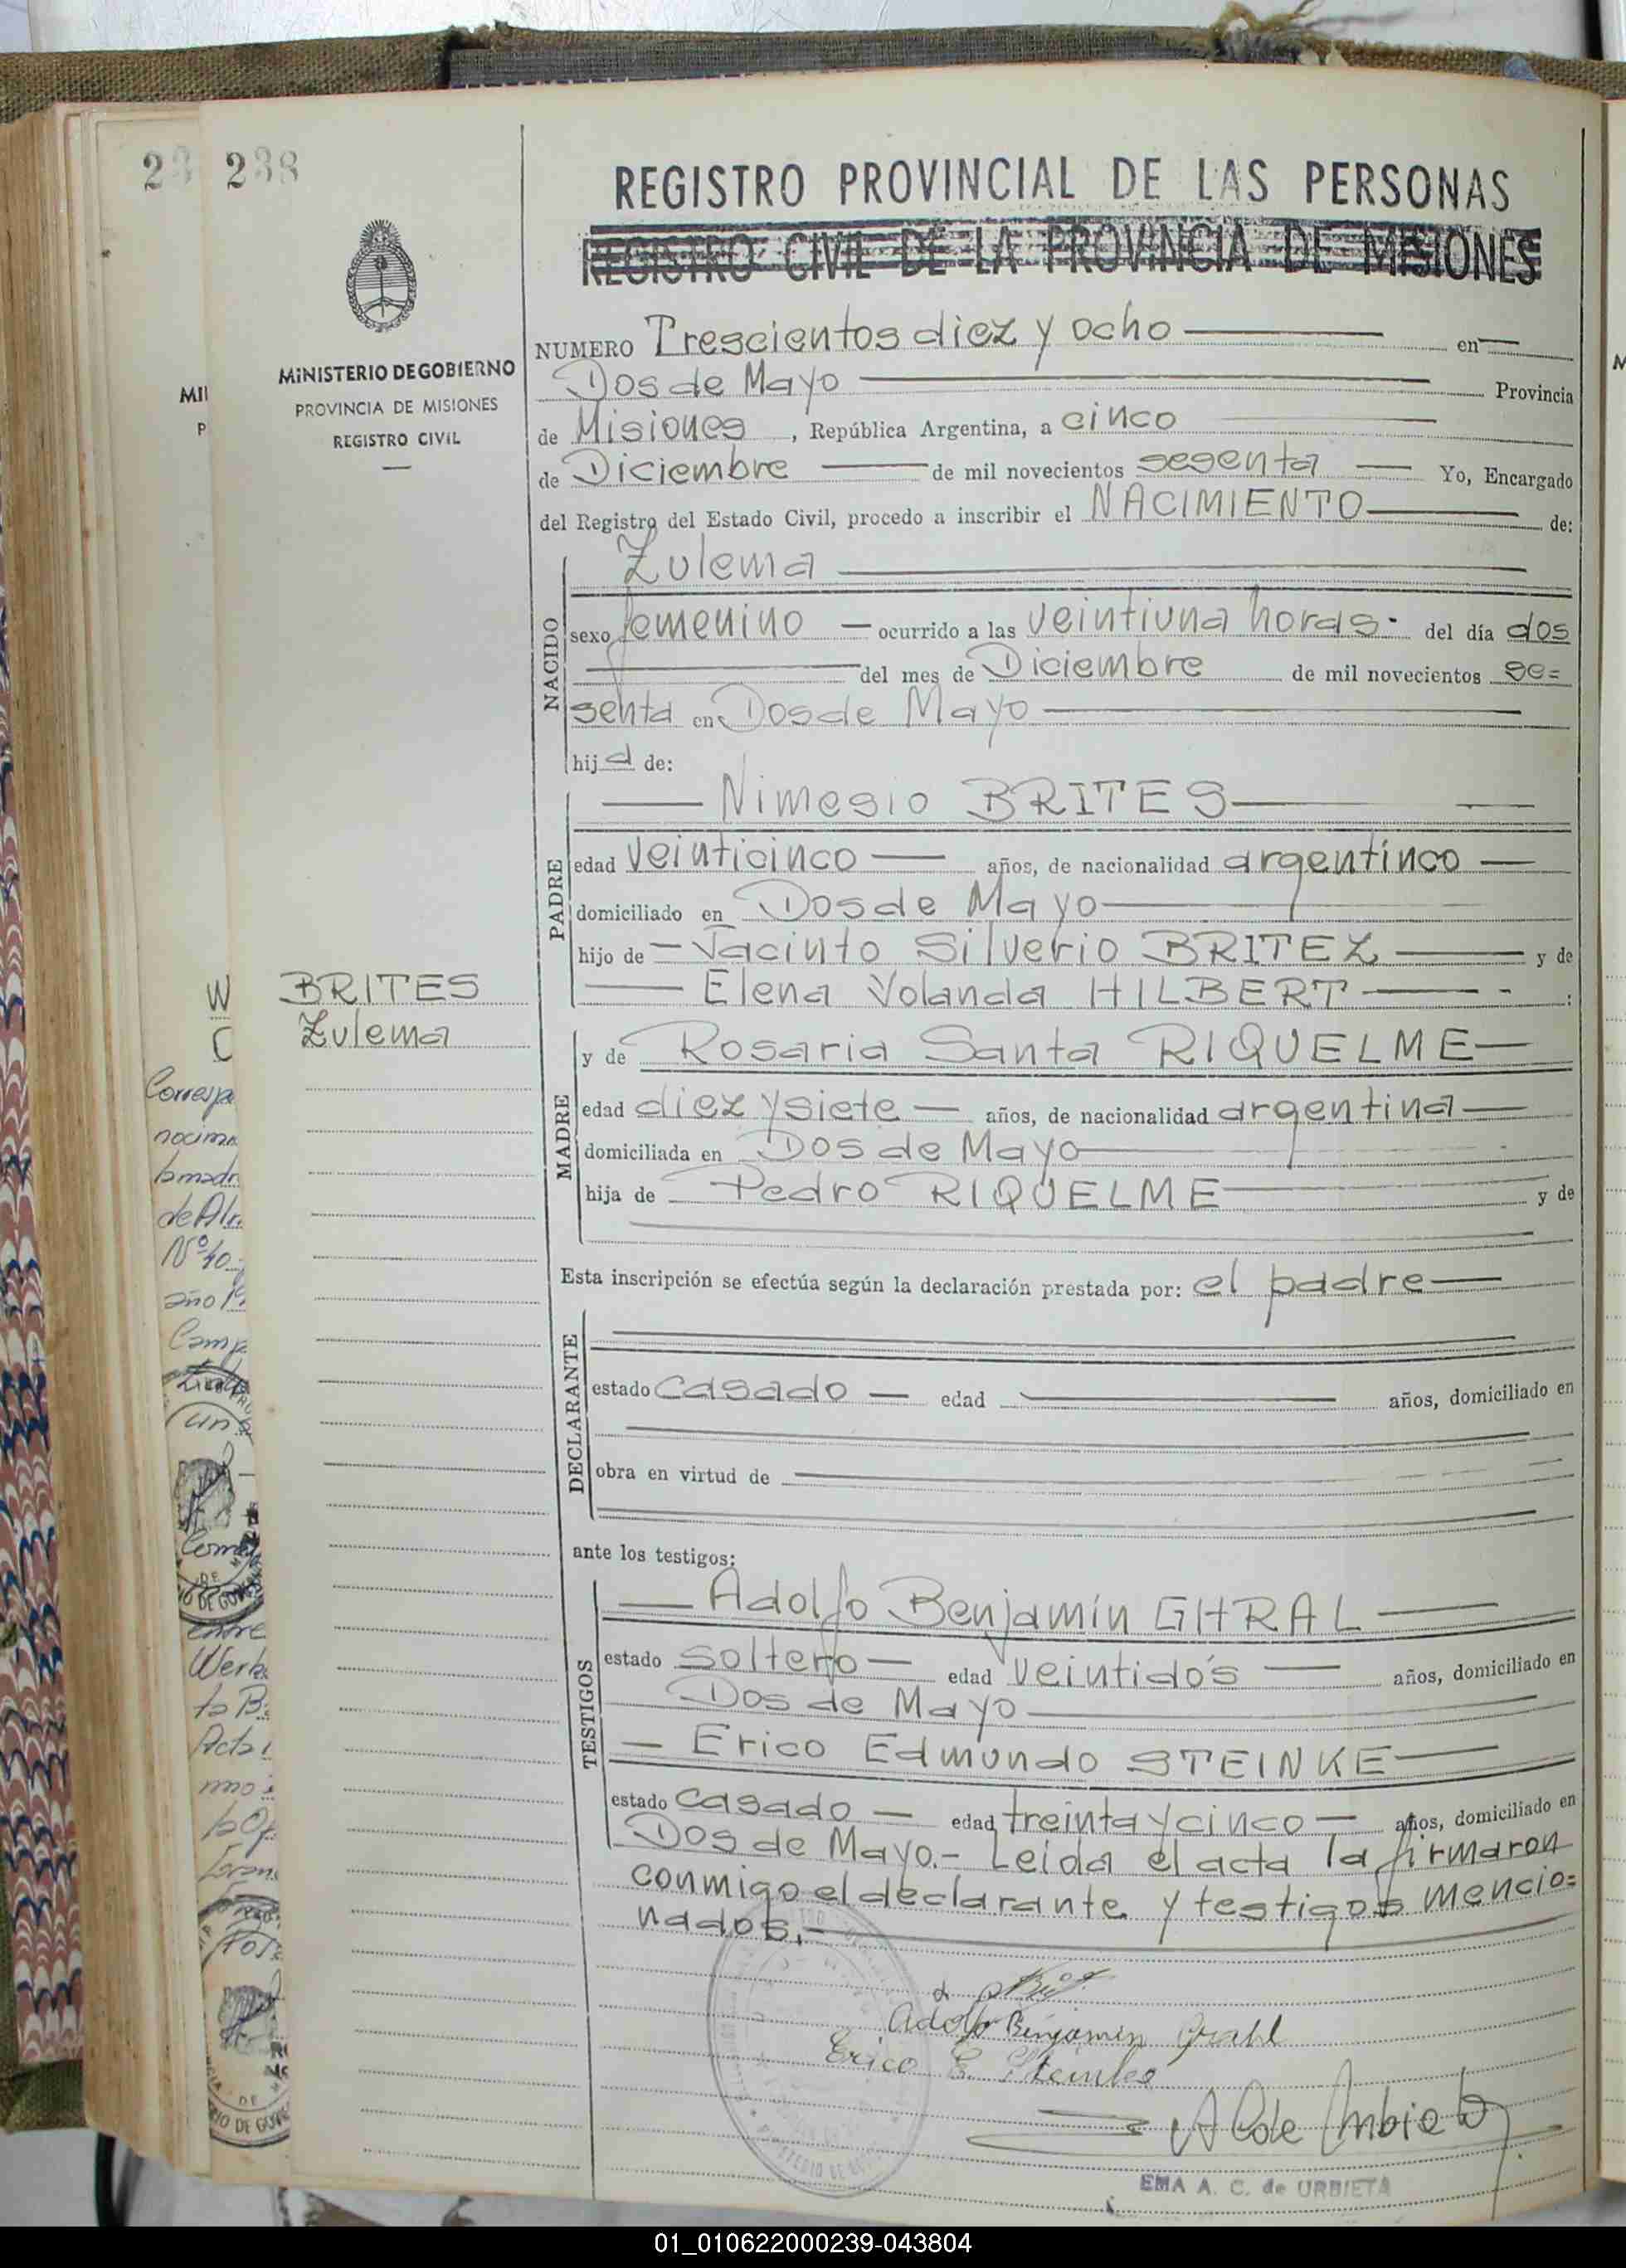 238
MINISTERIO DE GOBIERNO
PROVINCIA DE MISIONES
REGISTRO CIVIL
REGISTRO PROVINCIAL DE LAS PERSONAS
REGISTRO CIVIL DE LA PROVINCIA DE MISIONES
NUMERO Trescientos diez y ocho en
Dos de Mayo Provincia
de Misiones, República Argentina, a cinco
de Diciembre de mil novecientos sesenta Yo, Encargado
del Registro del Estado Civil, procedo a inscribir el NACIMIENTO de:
NACIDO
Zulema
sexo femenino ocurrido a las veintiuna horas. del día dos
del mes de Diciembre de mil novecientos se=
senta en Dos de Mayo
hija de:
PADRE
Nimesio BRITES
edad veinticinco años, de nacionalidad argentinco
domiciliado en Dos de Mayo
hijo de Jacinto Silverio BRITEZ y de
Elena Yolanda HILBERT :
BRITES
Zulema
MADRE
y de Rosaria Santa RIQUELME
edad diez y siete años, de nacionalidad argentina
domiciliada en Dos de Mayo
hija de Pedro RIQUELME y de
Esta inscripción se efectúa según la declaración prestada por: el padre
DECLARANTE
estado casado edad años, domiciliado en
obra en virtud de
ante los testigos:
TESTIGOS
Adolfo Benjamín GHRAL
estado soltero edad veintidós años, domiciliado en
Dos de Mayo
Erico Edmundo STEINKE
estado casado edad treinta y cinco años, domiciliado en
Dos de Mayo.- Leida el acta la firmaron
conmigo el declarante y testigos mencio=
nados.-
Adolfo Benjamin Grahl
Erico E. Steinke
EMA A. C. de URBIETA
01_010622000239-043804